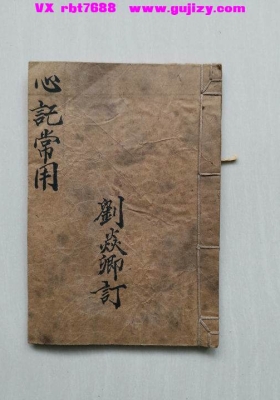 VX rbt7688   www.gujizy.com
心託常用
劉焱卿訂